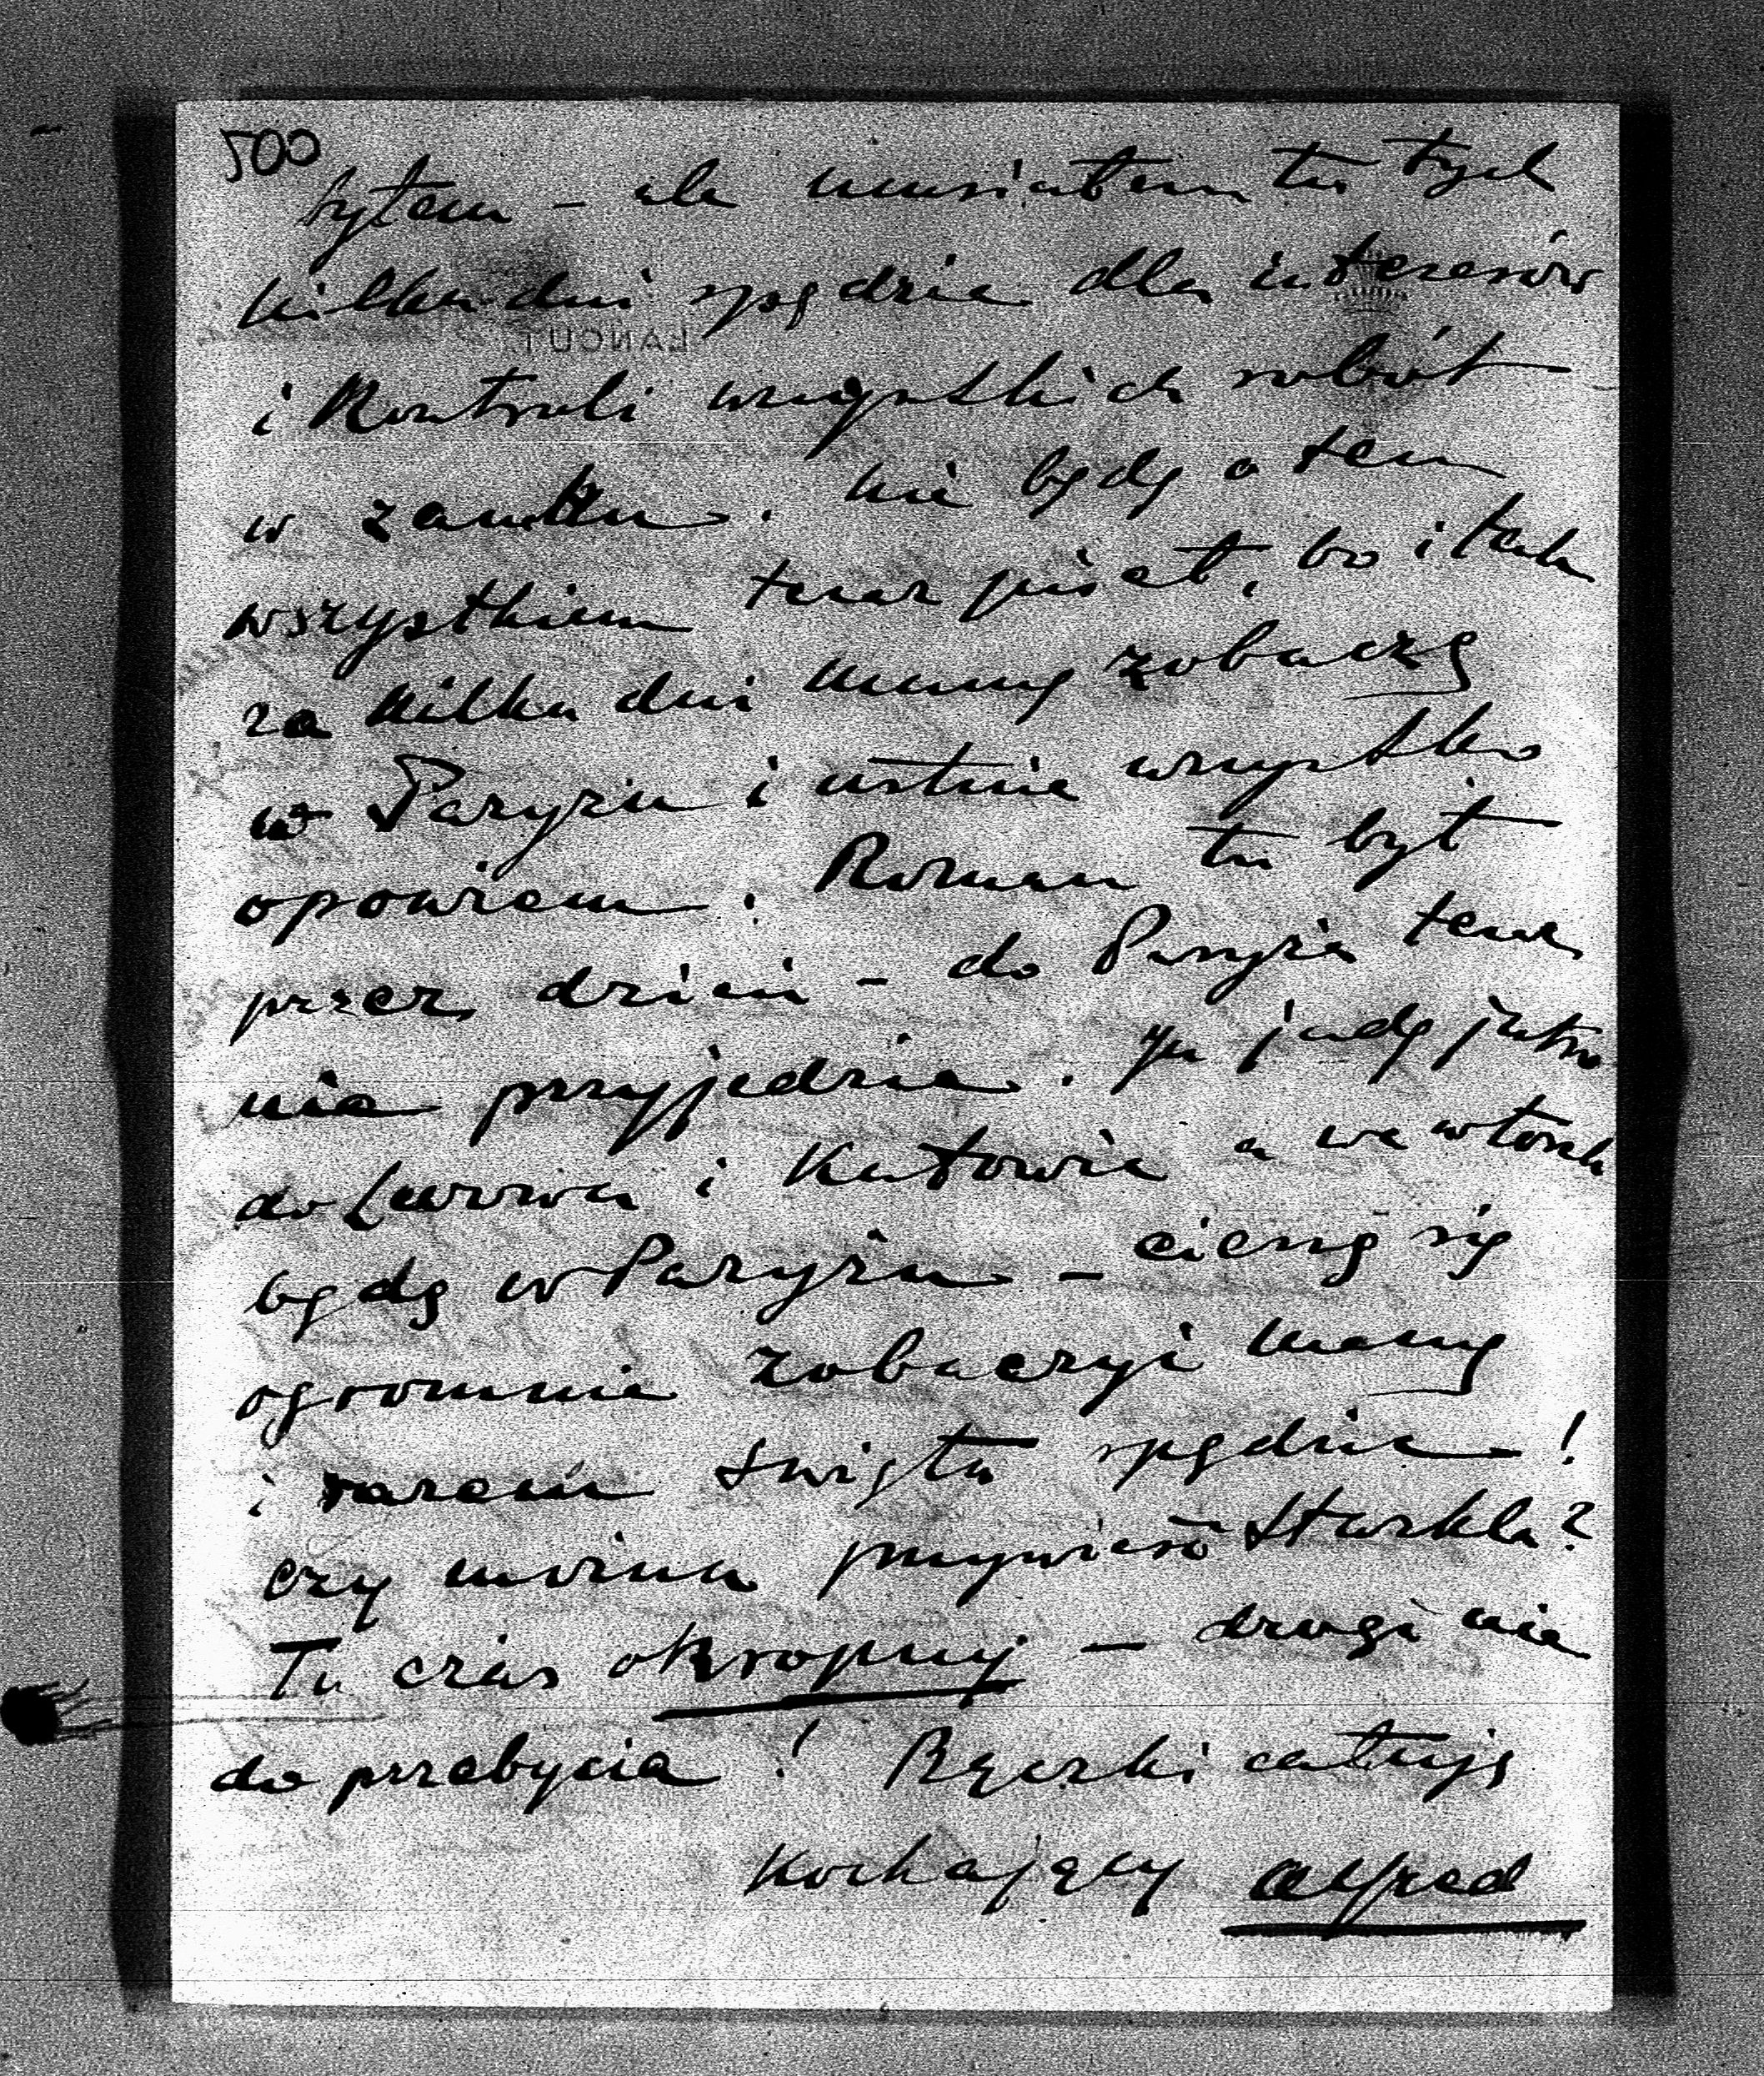 700
byłem – ale musiałem tu tych
kilka dni spędzić dla interesów
i kontroli wszystkich robót
w zamku. Nie będę o tem
wszystkiem teraz pisał, bo i tak
za kilka dni mamę zobaczę
w Paryżu i ustnie wszystko
opowiem. Roman tu był
przez dzień – do Paryża teraz
nie przyjedzie. Ja jadę jutro
do Lwowa i Katowic a we wtorek
będę w Paryżu – cieszę się
ogromnie zobaczyć mamę
i razem święta spędzić!
czy można przywieść Starkla?
Tu czas okropny – drogi nie
do przebycia! Rączki całuję
Kochający Alfred
ŁAŃCUT